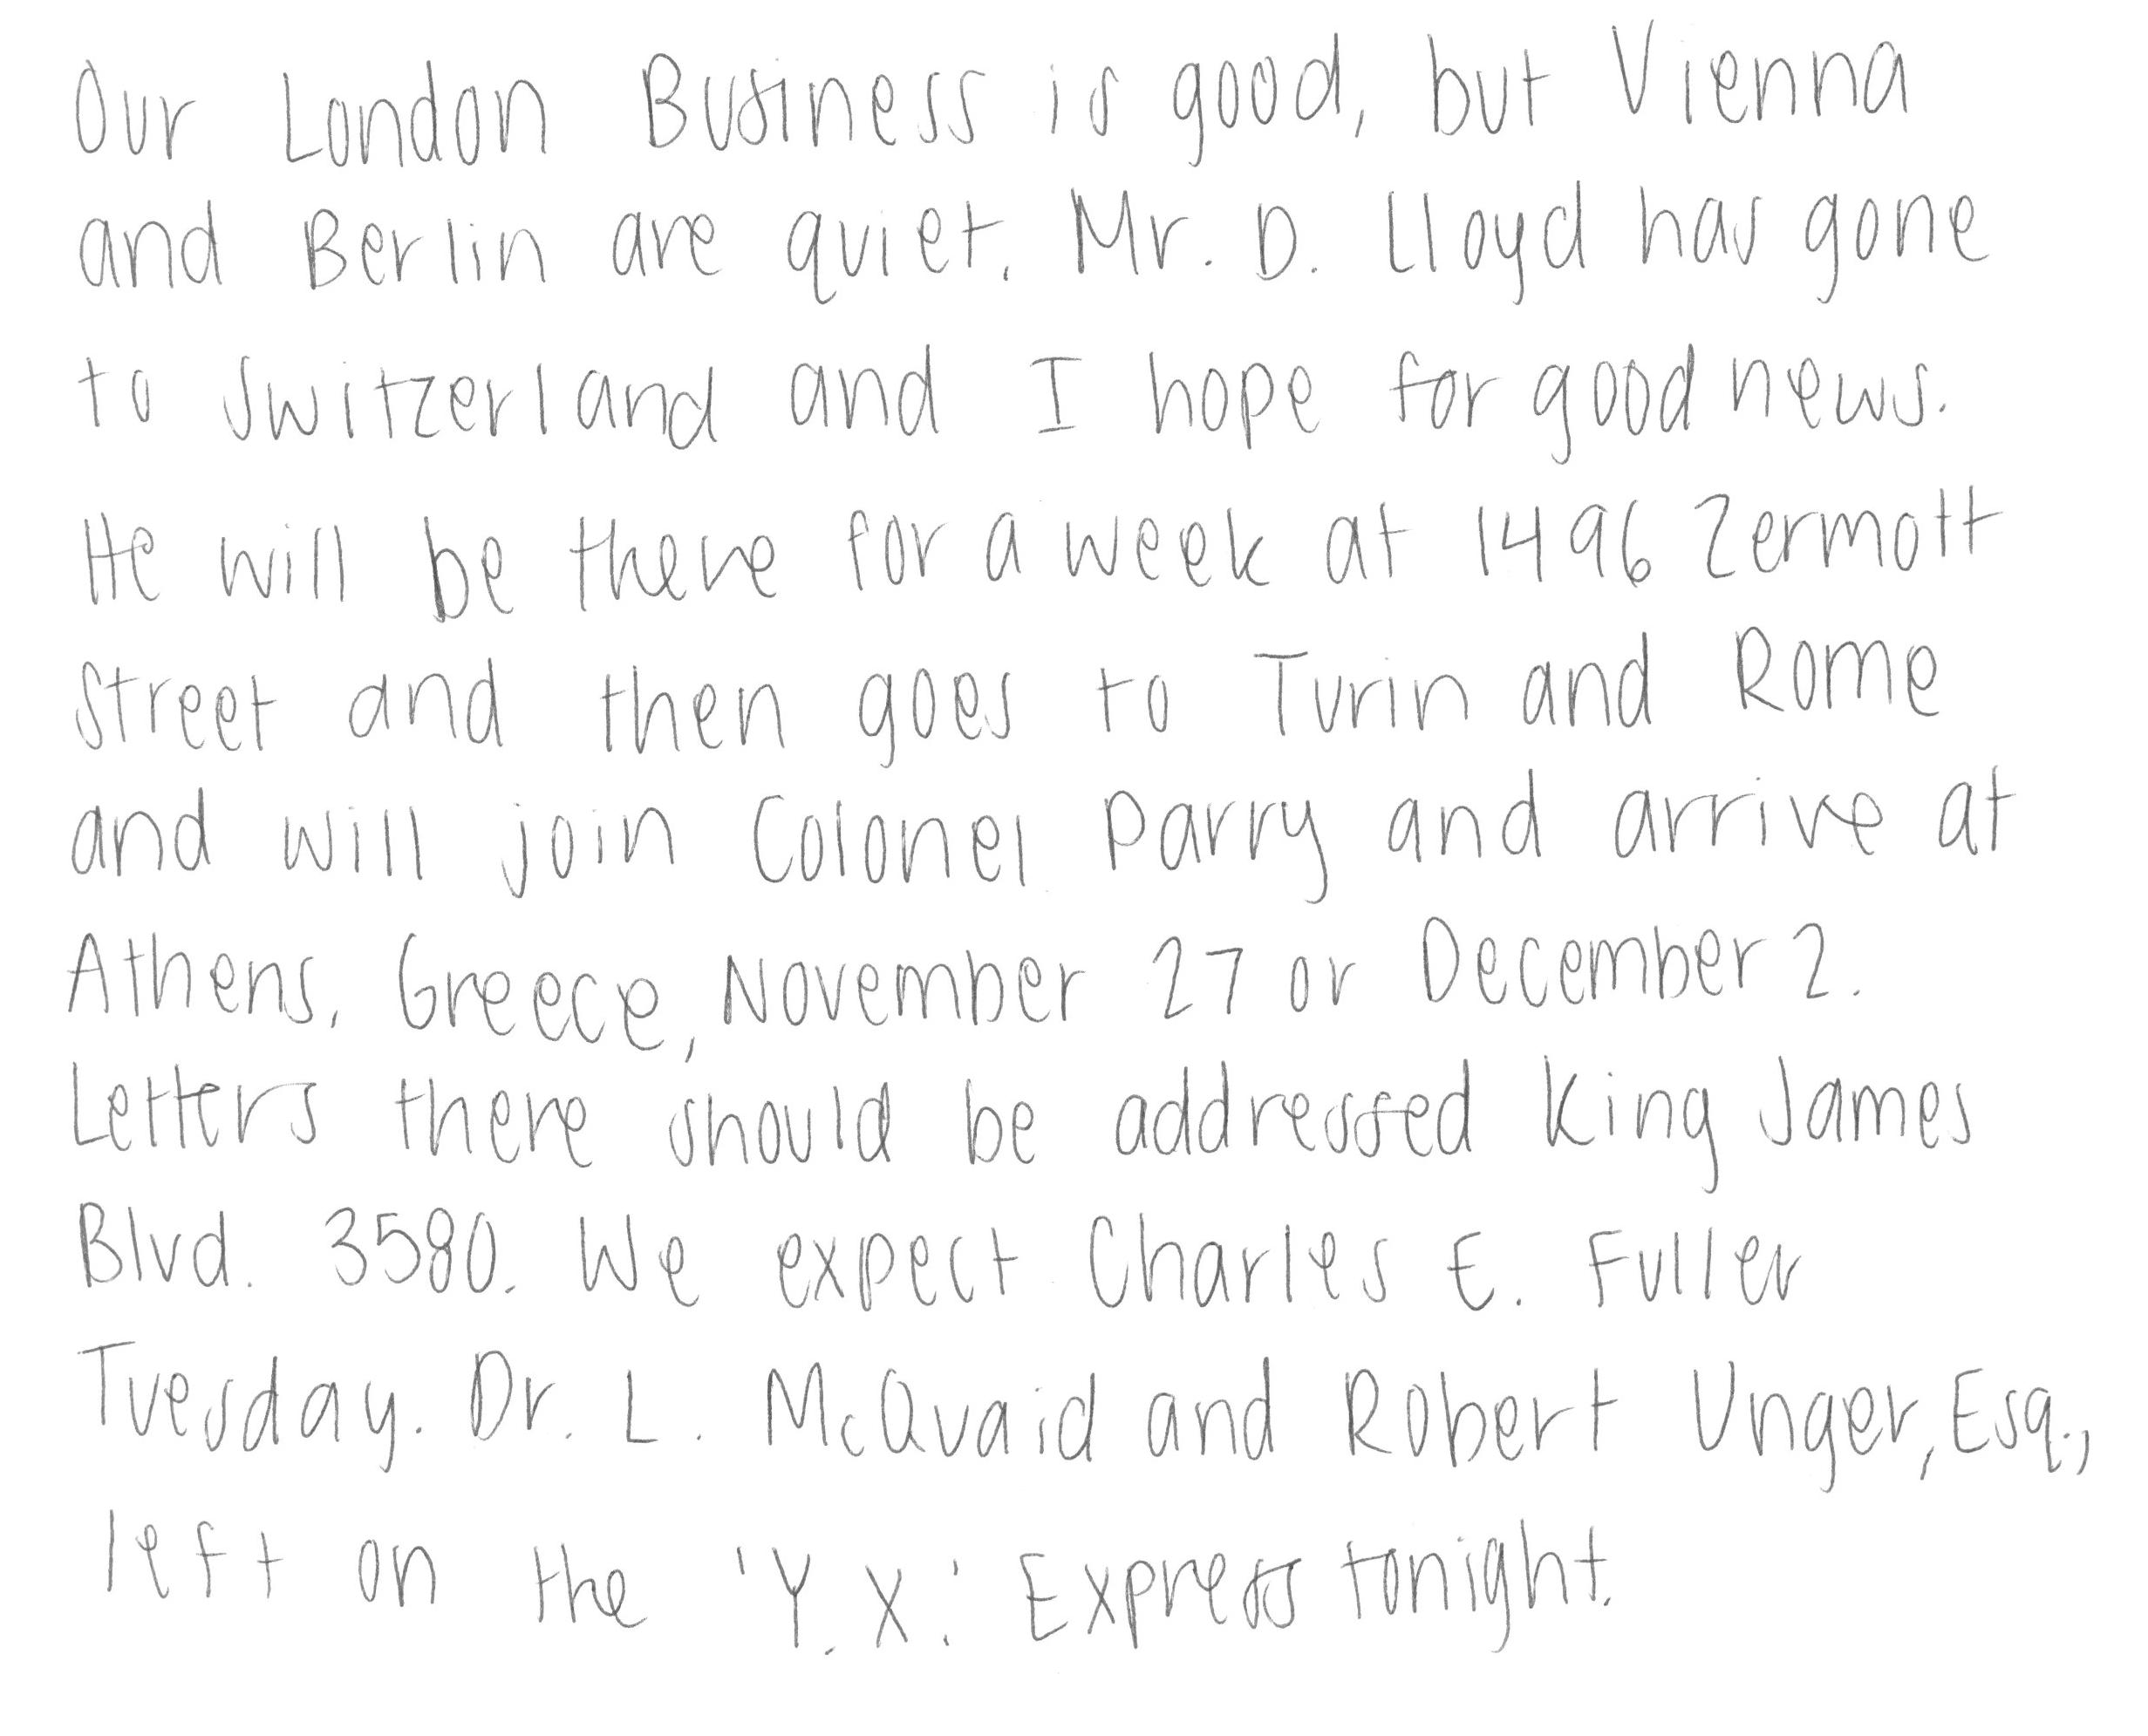 Our London Business is good, but Vienna
and Berlin are quiet. Mr. D. Lloyd has gone
to Switzerland and I hope for good news.
He will be there for a week at 1496 Zermott
Street and then goes to Turin and Rome
and will join Colonel Parry and arrive at
Athens, Greece, November 27 or December 2.
Letters there should be addressed King James
Blvd. 3580. We expect Charles E. Fuller
Tuesday. Dr. L. McQuaid and Robert Unger, Esq.,
left on the 'Y. X.' Express tonight.